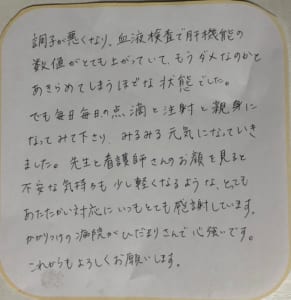 調子が悪くなり、血液検査で肝機能の
数値がとても上がっていて、もうダメなのかと
あきらめてしまうほどな状態でした。
でも毎日毎日の点滴と注射と親身に
なってみて下さり、みるみる元気になっていき
ました。先生と看護師さんのお顔を見ると
不安な気持ちも少し軽くなるような、とっても
あたたかい対応にいつもとても感謝しています。
かかりつけの病院がひだまりさんで心強いです。
これからもよろしくお願いします。